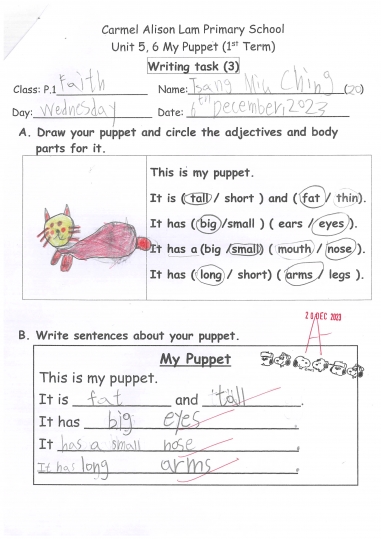 Carmel Alison Lam Primary School
Unit 5, 6 My Puppet (1st Term)
Writing task (3)
Class: P.1 Faith Name: Tsang Niu Ching (20)
Day: Wednesday Date: 6th December, 2023
A. Draw your puppet and circle the adjectives and body
parts for it.
This is my puppet.
It is ( tall / short ) and ( fat / thin).
It has ( big /small ) ( ears / eyes ).
It has a (big /small) ( mouth / nose ).
It has ( long / short) ( arms / legs ).
20 DEC 2023
A
B. Write sentences about your puppet.
My Puppet
This is my puppet.
It is fat and tall.
It has big eyes.
It has a small nose.
It has long arms.